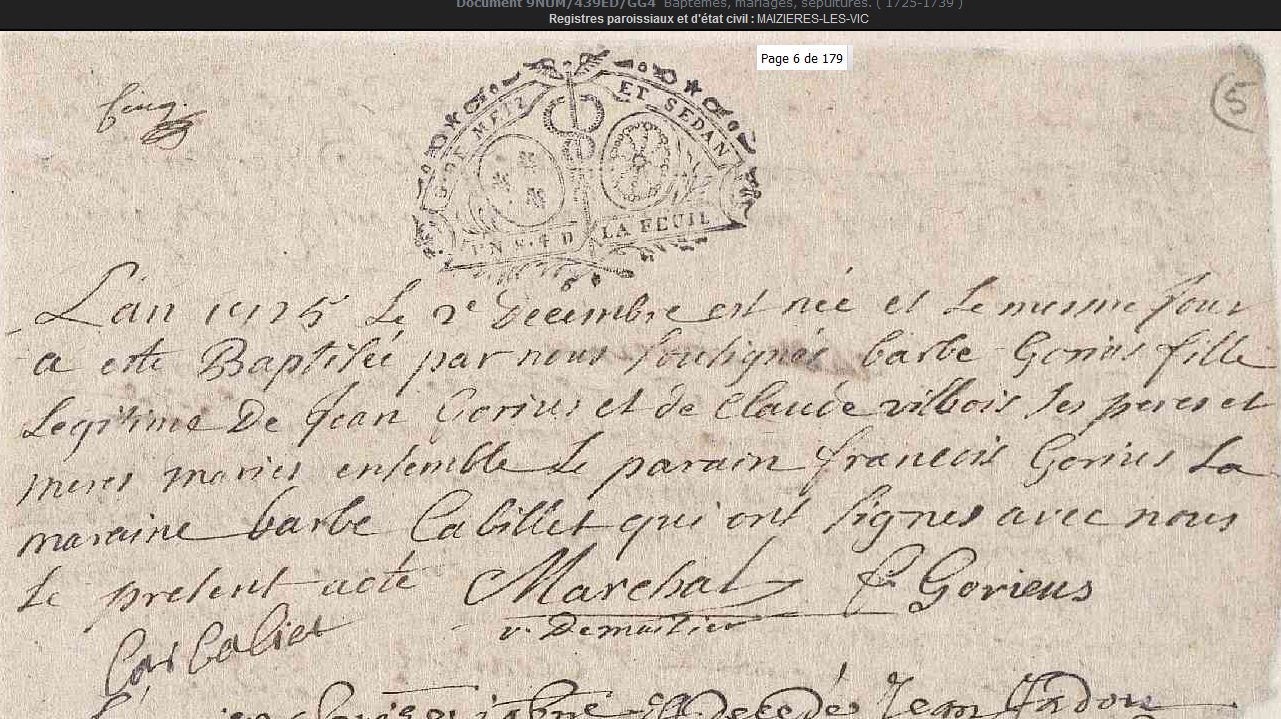 Document 9NUM/439ED/GG4 Baptêmes, mariages, sépultures. ( 1725-1739 )
Registres paroissiaux et d'état civil : MAIZIERES-LES-VIC
Page 6 de 179
cinq.
5
DE METZ ET SEDAN
UN S. 4 D. LA FEUIL
L'an 1725 Le 2e Decembre est née et Le mesme Jour
a este Baptisée par nous soussignés barbe Gorius fille
Legitime De Jean Gorius et de Claude villois ses peres et
meres mariés ensemble Le parain francois Gorius La
maraine barbe Cabillet qui ont signes avec nous
Le present acte Marchal f Gorieus
v. De
Decedé Jean